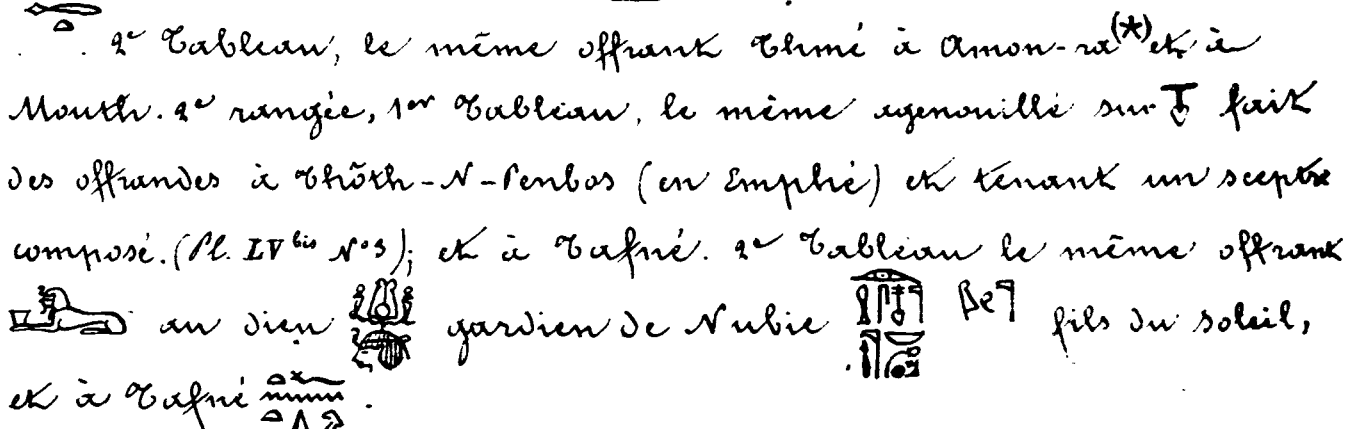 . 2e Tableau, le même offrant Thmé à Amon-ra(*) et à
Mouth. 2e rangée, 1er Tableau, le même agenouillé sur fait
des offrandes à Thôth-N-Penbos (en Emphé) et tenant un sceptre
composé. (Pl. LV bis No 3); et à Tafné. 2e Tableau le même offrant
au dieu gardien de Nubie fils du soleil,
et à Tafné .